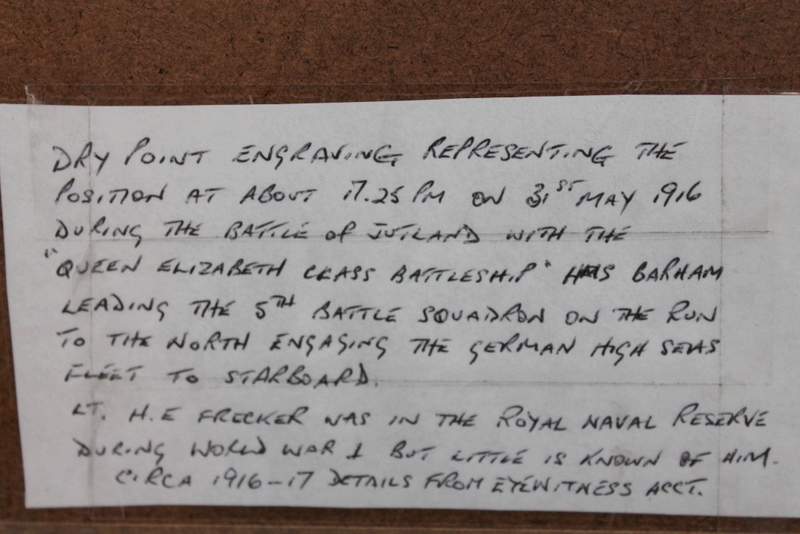 DRY POINT ENGRAVING REPRESENTING THE
POSITION AT ABOUT 17.25 PM ON 31ST MAY 1916
DURING THE BATTLE OF JUTLAND WITH THE
"QUEEN ELIZABETH CLASS BATTLESHIP" HMS BARHAM
LEADING THE 5TH BATTLE SQUADRON ON THE RUN
TO THE NORTH ENGAGING THE GERMAN HIGH SEAS
FLEET TO STARBOARD.
LT. H.E FRECKER WAS IN THE ROYAL NAVAL RESERVE
DURING WORLD WAR 1 BUT LITTLE IS KNOWN OF HIM.
CIRCA 1916-17 DETAILS FROM EYEWITNESS ACCT.